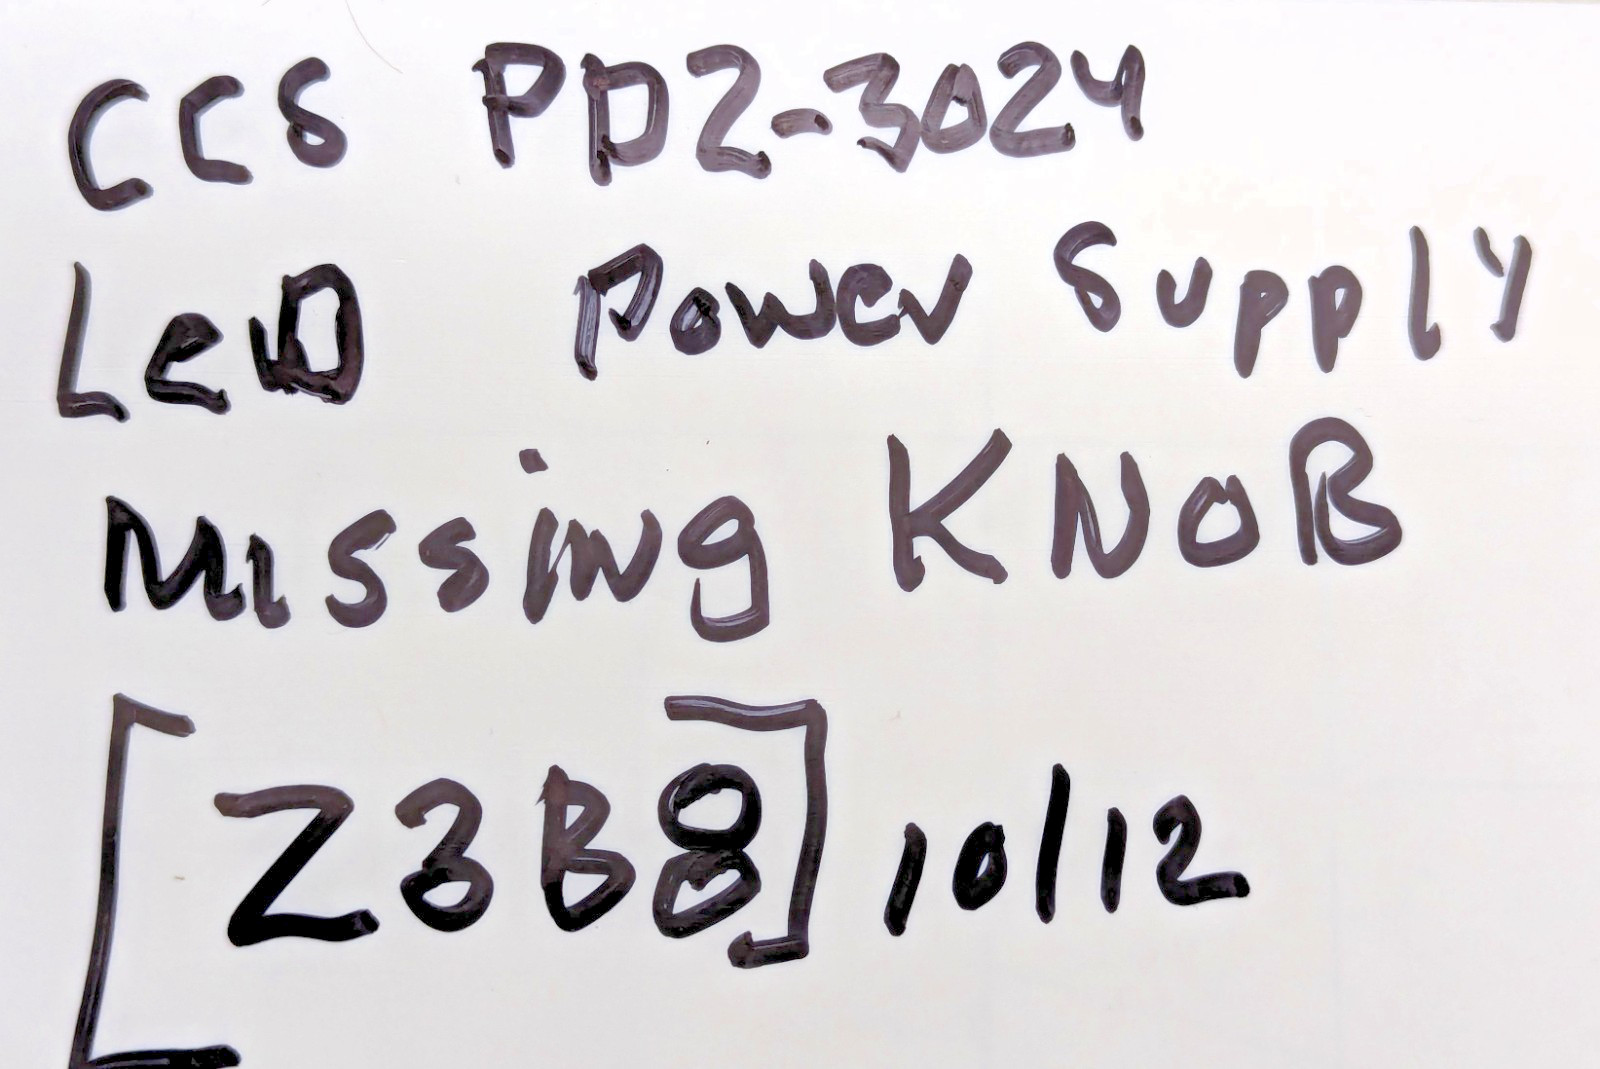 CCS PD2-3024
LeD Power Supply
Missing KNOB
[Z3B8] 10/12